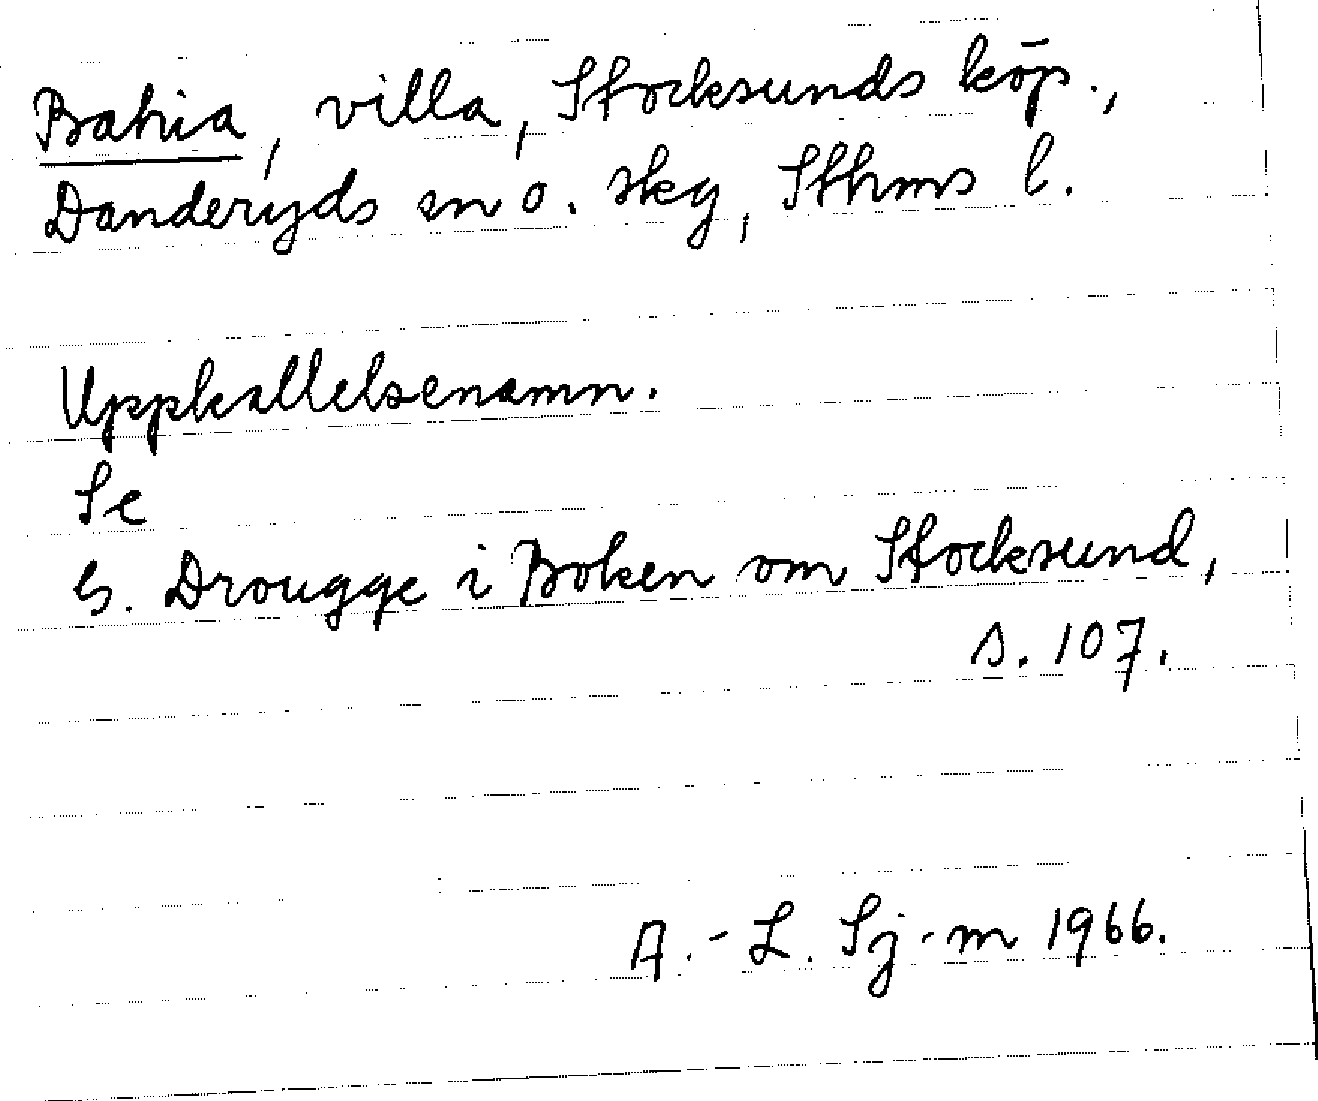 Bahia, villa, Stocksunds köp.,
Danderyds sn o. skg, Sthms l.
Uppkallelsenamn.
Se
G. Drougge i Boken om Stocksund,
s. 107.
A.-L. Sj-m 1966.